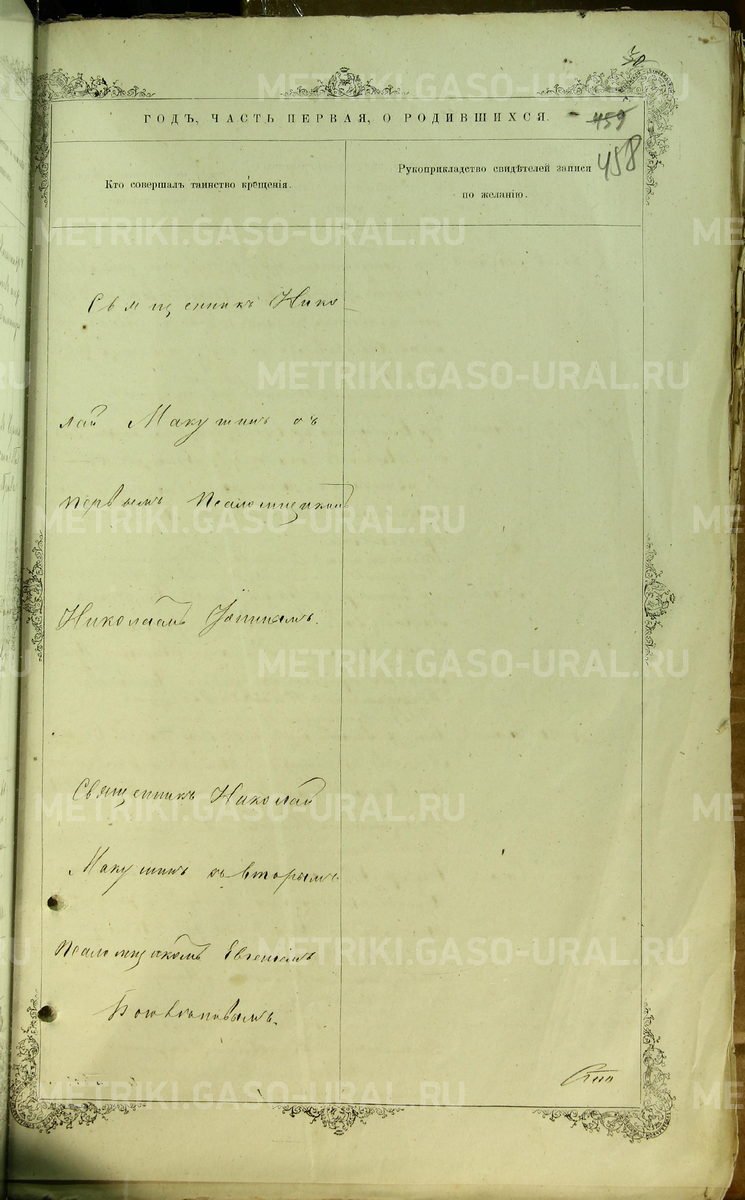 ГОДЪ, ЧАСТЬ ПЕРВАЯ, О РОДИВШИХСЯ.
459
458
Кто совершалъ таинство крещенія.
Рукоприкладство свидѣтелей записи
по желанію.
Священникъ Нико-
лай Макушинъ съ
первымъ Псаломщикомъ
Николаемъ
Священникъ Николай
Макушинъ съ вторымъ
Псаломщикомъ Евгеніемъ
METRIKI.GASO-URAL.RU